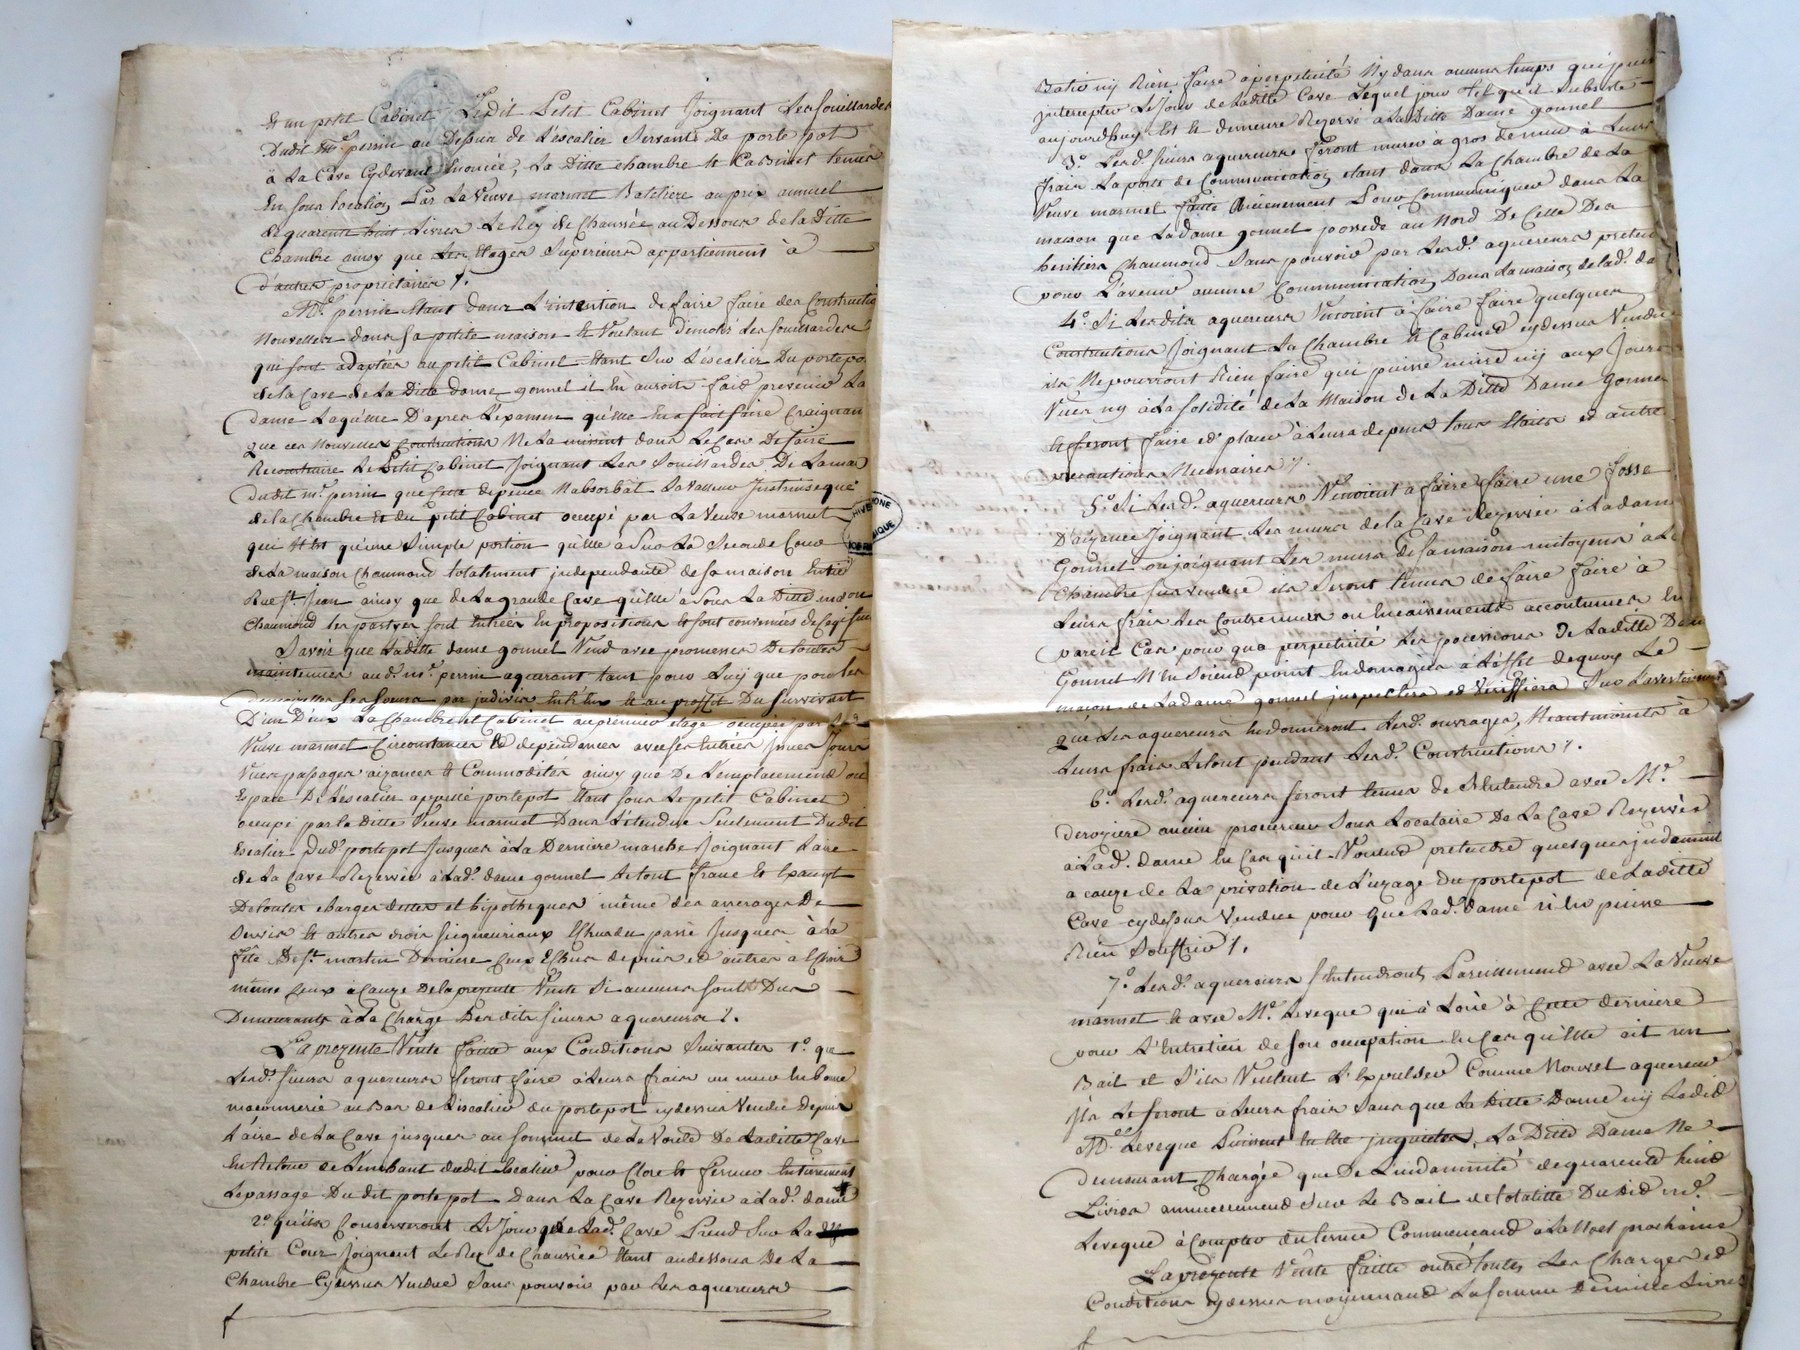 Et un petit Cabinet Ledit Petit Cabinet Joignant Les souillardes
Dudit Mr perrin au Dessus de L'escalier Servant De porte pot
à La Cave Cydevant Enoncée, La Ditte chambre et Cabinet tenus
En sous location Par La Veuve marmet Batiliere au prix annuel
de quarente huit Livres Le Rez de Chaussée au Dessous de la Ditte
Chambre ainsy que Les Etages Superieurs appartiennent à
d'autres proprietaires /.
Mr. perrin Etant dans L'intention de faire faire des Constructio
Nouvelles dans sa petite maison et Voulant Demolir Les souillardes
qui sont adaptées au petit Cabinet Etant Sur L'escalier Du portepo
de la Cave de La Ditte dame gonnet il En auroit fait prevenir La
dame Laquelle D'apres L'examen qu'elle En a fait faire Craignan
que ces Nouvelles Constructions Ne La missent dans Le Cas De faire
Reconstruire Le Petit Cabinet Joignant Les Souillardes De La mai
dudit mr. perrin que cette depence N'absorbat La Valleur Jntrinseque
de la Chambre Et du petit Cabinet occupé par La Veuve marmet
qui N'est qu'une Simple portion qu'elle à Sur La Seconde Cour
de La maison Chaumond totalement jndependante de sa maison
Rue St. Jean ainsy que de La grande Cave qu'elle a Sous La Ditte maison
Chaumond les parties sont Entrées En propositions et sont convenues de Ce qui suit
Savoir que Laditte dame gonnet Vend avec promesses De toutes
maintenues aud. mr. perrin aquerant tant pour Luy que pour les
Demoiselles Ses Soeurs par jndivis Entr'eux et au proffit Du Survivant
D'un D'eux La Chambre et Cabinet au premier Etage occupés par La
Veuve marmet Circonstances et dependances avec ses Entrées jssues Jours
Vues passages aizances et Commodités ainsy que De L'emplacement ou
Espace De L'escalier appellé portepot Etant sous Le petit Cabinet
occupé par la Ditte Veuve marmet Dans L'etendue Seulement Dudit
Escalier Dud. portepot Jusques à La Derniere marche Joignant L'aire
de La Cave Rezervée à Lad. dame gonnet Le tout franc Et Exempt
De toutes charges dettes et hipotheques même des arrerages De
Servis et autres droits seigneuriaux Echus du passé Jusques à La
fête De St. martin Derniere Ceux Echus depuis et autres à Echoir
même Ceux à Cauze De la prezente Vente Si aucuns sont Dus
Demeurants à La Charge Des dits sieurs aquereurs /.
La prezente Vente faitte aux Conditions Suivantes 1°. que
Lesd. sieurs aquereurs feront faire à Leurs frais un mur En bonne
maçonnerie au Bas de L'escalier du portepot cydessus Vendu Depuis
L'aire de La Cave jusques au sommet de La Voute De Laditte Cave
En Retour de L'embant dudit Escalier pour Clore et fermer Entierement
Le passage Du dit porte pot Dans La Cave Rezervée à Lad. dame
2°. qu'ils Conserveront Le Jour que Lad. Cave Prend Sur La
petite Cour Joignant Le Rez de Chaussée Etant audessous De La
Chambre Cydessus Vendue Sans pouvoir par Les aquereurs
Batir ny Rien faire à perpetuité Ny dans aucuns temps qui puis
jntercepter Le Jour de Laditte Cave Lequel jour tel qu'il Subsiste
aujourdhuy Est et demeure Rezervé à La Ditte Dame gonnet
3°. Lesd. sieurs aquereurs feront murer à gros de mur à Leurs
frais La porte de Communication Etant dans La Chambre de La
Veuve marmet faitte anciennement Pour Communiquer dans La
maison que La dame gonnet possede au Nord De Celle Des
heritiers Chaumond Sans pouvoir par Lesd. aquereurs preten
pour L'avenir aucune Communication Dans La maison de lad. da
4°. Si Lesdits aquereurs Venoient à faire faire quelques
Constructions Joignant La Chambre et Cabinet cydessus Vendu
ils Ne pourront Rien faire qui puisse nuire ny aux Jours
Vues ny à La Solidité de La Maison de La Ditte Dame Gonnet
Et feront faire et placer à Leurs depens tous Etaits et autre
precautions Necessaires /.
5°. Si Lesd. aquereurs Venoient à faire faire une fosse
D'aizance Joignant Les murs de la Cave Rezervée à La dam
Gonnet ou joignant Les murs de sa maison mitoyens à La
Chambre Sus Vendue ils Seront tenus de faire faire à
Leurs frais Les Contremurs ou Encaissements accoutumés En
pareil Cas pour qu'a perpetuité Les possessions De Laditte Dam
Gonnet N'En Soient point Endomagées à L'effet de quoy Le
maçon de La dame gonnet jnspectera et Veriffiera Sur L'avertissement
que Les aquereurs En donneront Lesd. ouvrages, Neantmoints à
Leurs frais Le tout pendant Lesd. Constructions /.
6°. Lesd. aquereurs Seront tenus de S'Entendre avec Mr.
derozière ancien procureur Sous Locataire De La Cave Rezervée
à Lad. dame En Cas qu'il Voulut pretendre quelques jndemnité
a cauze de La privation de L'uzage Du portepot de Laditte
Cave cydessus Vendue pour que Lad. dame N'En puisse
Rien Souffrir /.
7°. Lesd. aquereurs S'Entendront Pareillement avec La Veuve
marmet et avec Mr. Leveque qui à Loué à Cette derniere
pour L'Entretien de son occupation En Cas qu'Elle ait un
Bail et S'ils Veulent L'Expulser Comme Nouvel aquereur
jls Le feront a Leurs frais Sans que La Ditte Dame ny Ledit
Mr. Leveque Puissent En Etre jnquietés, La Ditte Dame Ne
demeurant Chargée que De L'indamnité de quarente huit
Livres annuellement Sur Le Bail de totalitté Dudit Sr.
Leveque à Compter du terme Commencant à La Noel prochaine
La prezente Vente faitte outre toutes Les Charges et
Conditions cydessus moyennant La somme De mille Livres